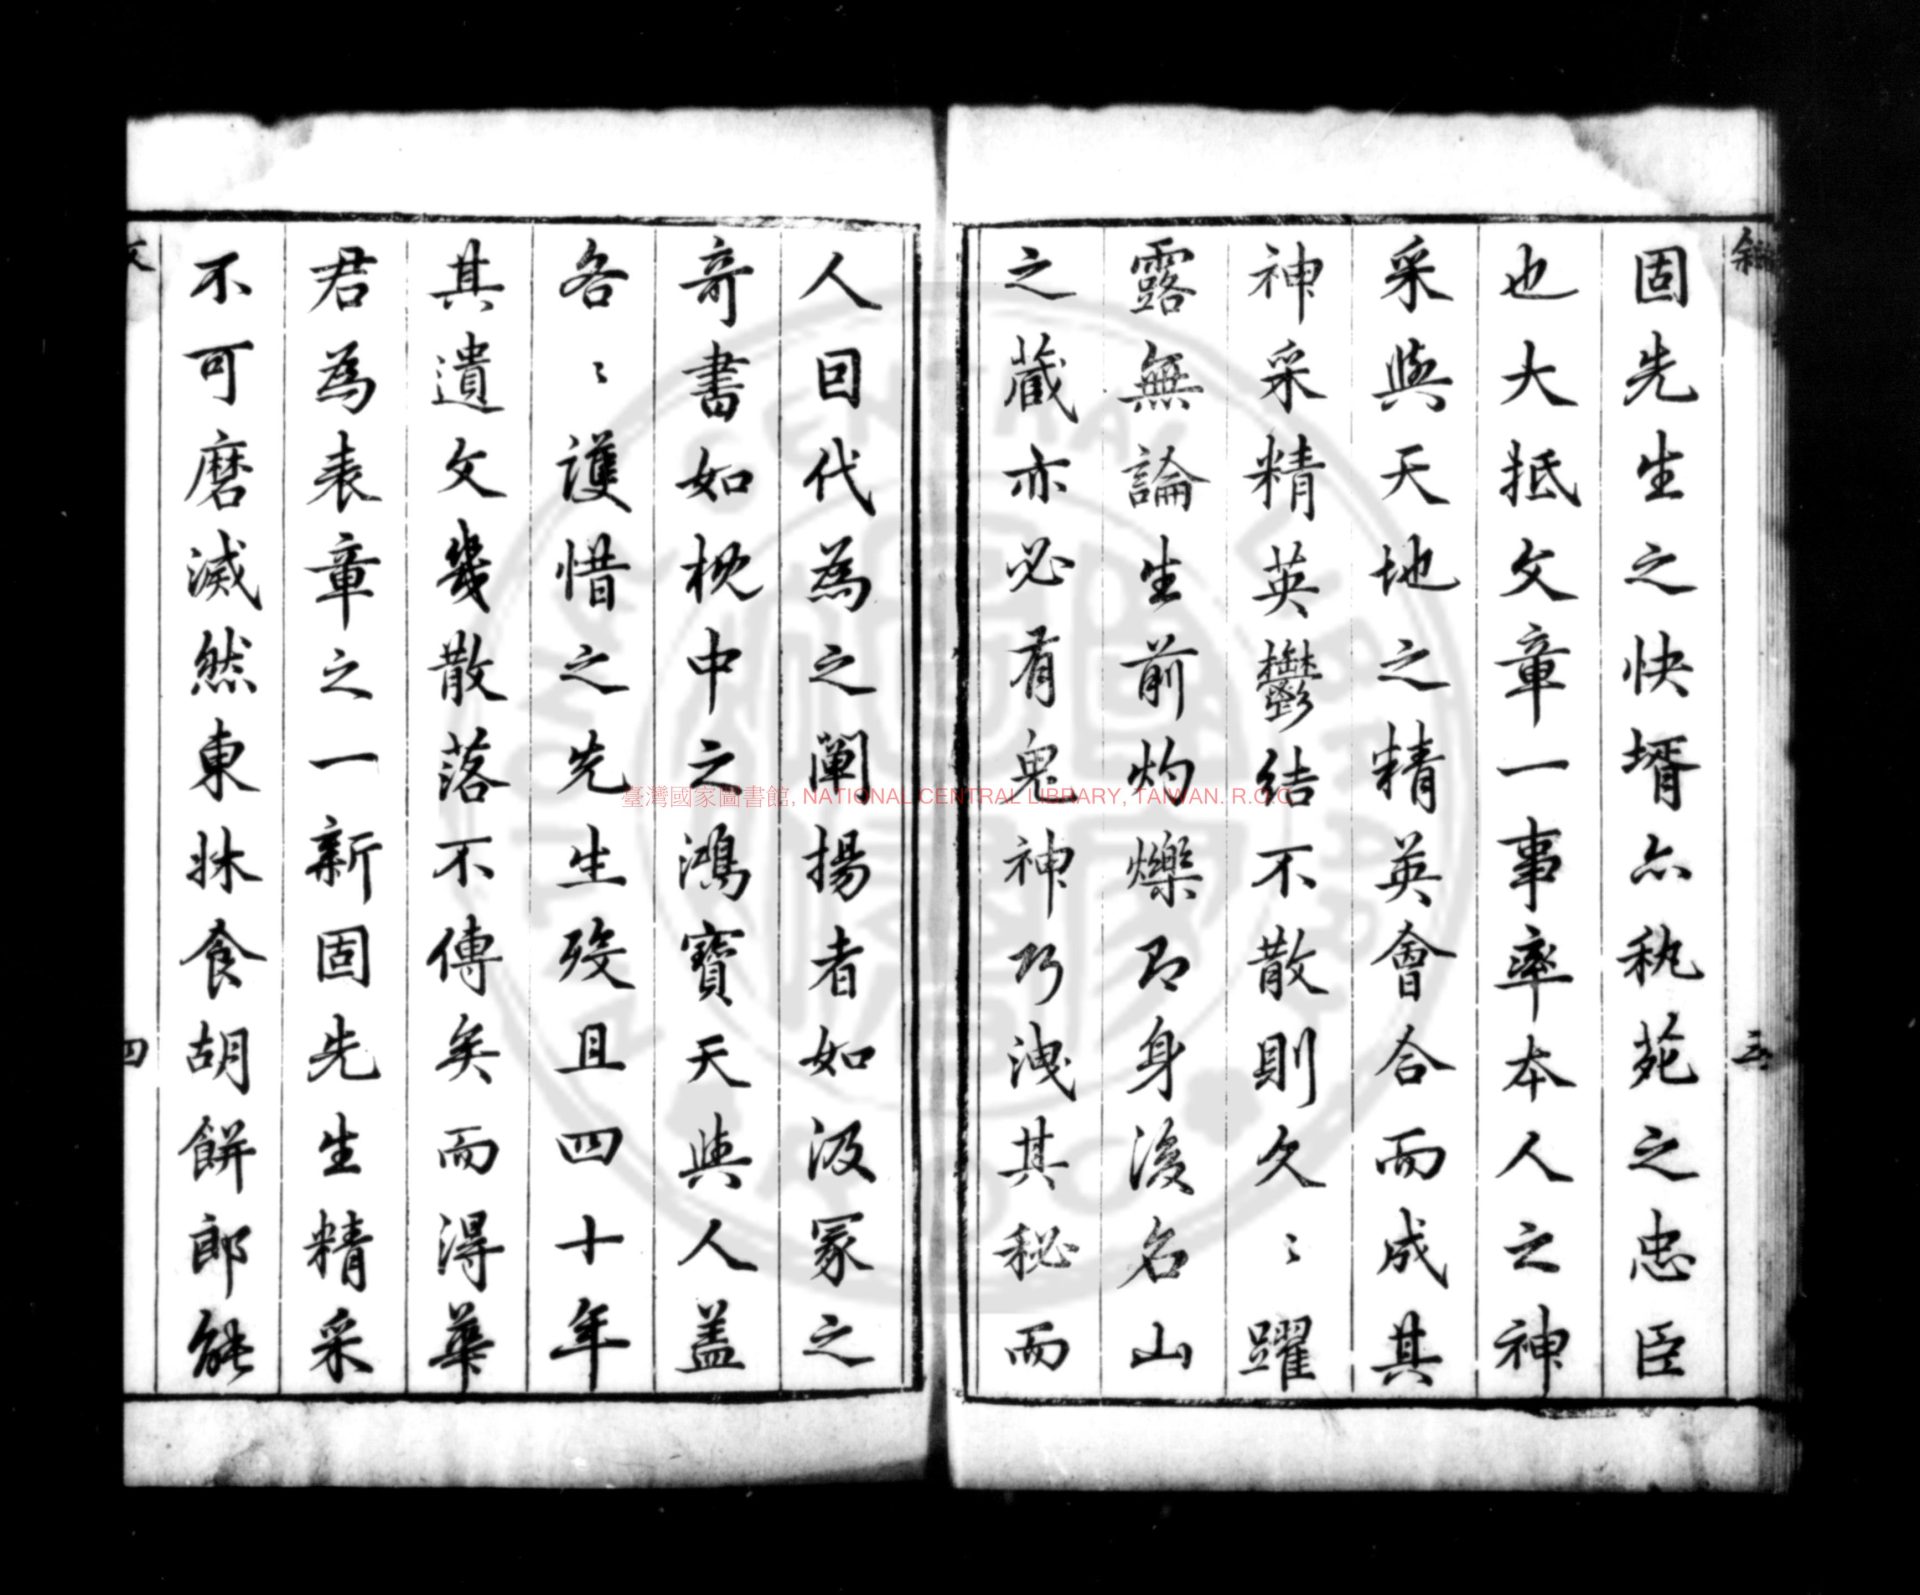 叙
三
固先生之快壻亦秇苑之忠臣
也大抵文章一事率本人之神
采與天地之精英會合而成其
神采精英鬱結不散則久〻躍
露無論生前灼爍即身後名山
之藏亦必有鬼神巧洩其秘而
人囙代為之闡揚者如汲冢之
竒書如枕中之鴻寶天與人盖
各〻護惜之先生歿且四十年
其遺文㡬散落不傳矣而得華
君為表章之一新固先生精采
不可磨滅然東牀食胡餅郎能
四
臺灣國家圖書館, NATIONAL CENTRAL LIBRARY, TAIWAN. R.O.C